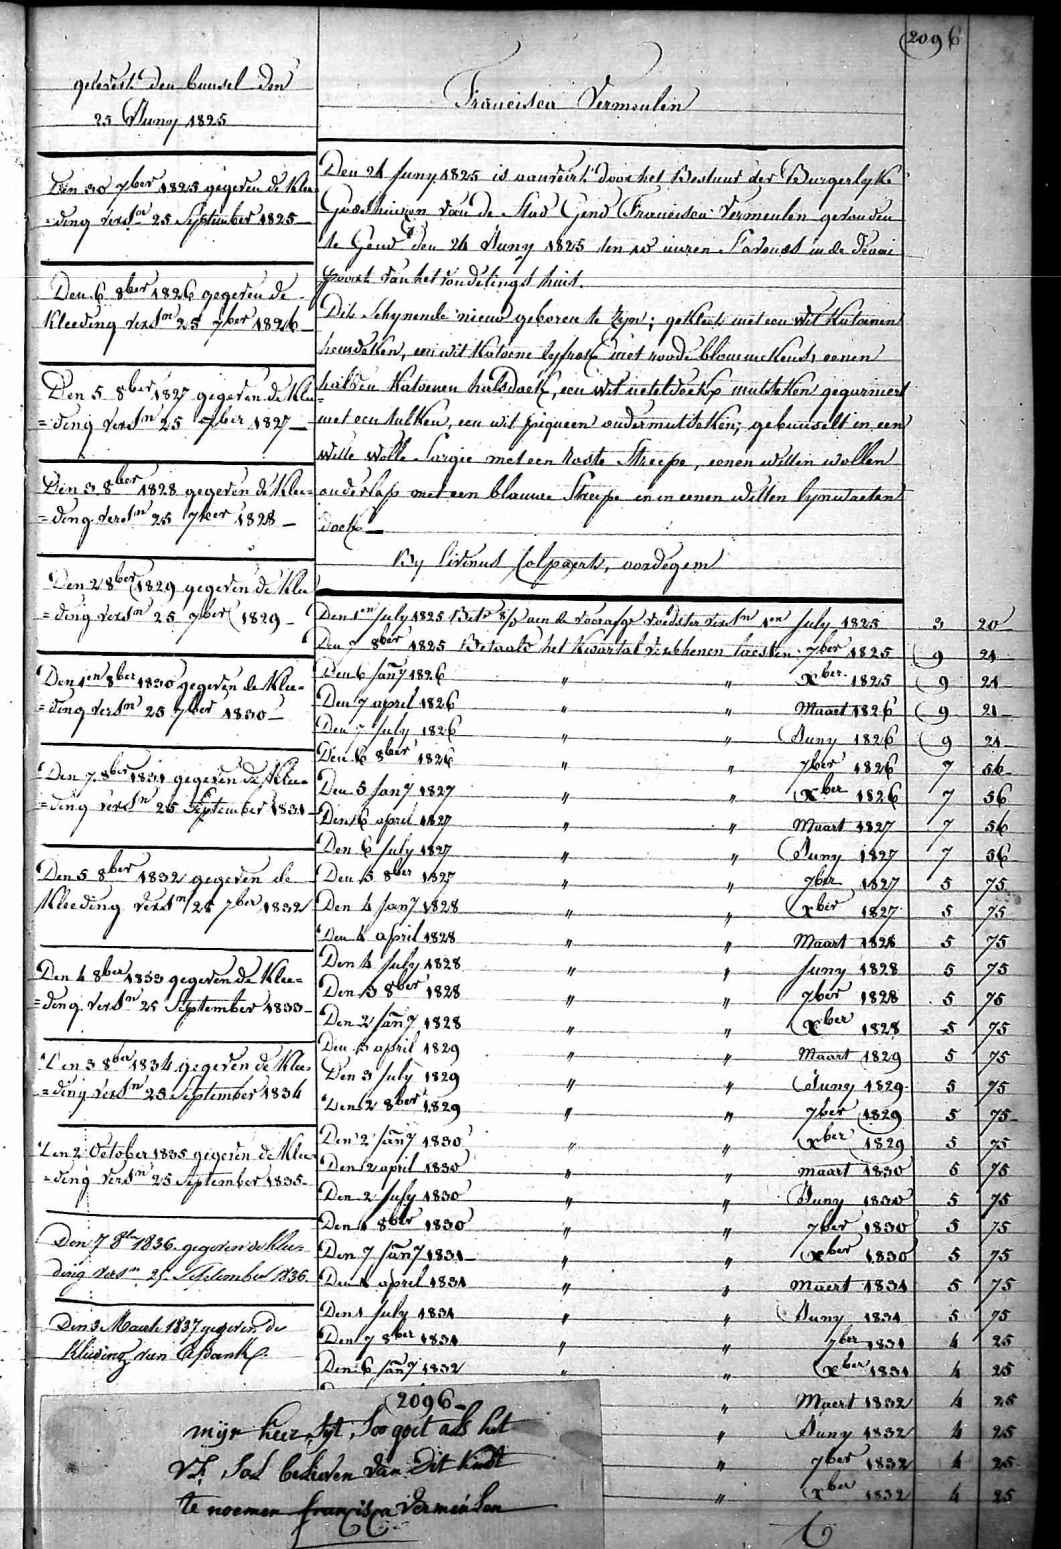 2096
gelevert den bunsel den
25 Juny 1825
Francisca Vermeulen
Den 30 7ber 1825 gegeven de klee
=ding versn 25 September 1825
Den 6 8ber 1826 gegeven de
kleeding versn 25 7ber 1826
Den 5 8ber 1827 gegeven de klee
=ding versn 25 7ber 1827
Den 3 8ber 1828 gegeven de klee=
=ding versn 25 7ber 1828
Den 2 8ber 1829 gegeven de klee
=ding versn 25 7ber 1829
Den 1en 8ber 1830 gegeven de klee=
=ding versn 25 7ber 1830
Den 7 8ber 1831 gegeven de klee=
=ding versn 25 September 1831
Den 5 8ber 1832 gegeven de
kleeding versn 25 7ber 1832
Den 4 8ber 1833 gegeven de klee=
=ding versn 25 September 1833
Den 3 8ber 1834 gegeven de klee=
=ding versn 25 September 1834
Den 2 October 1835 gegeven de klee
=ding versn 25 September 1835
Den 7 8br 1836 gegeven de klee=
ding versn 25 September 1836
Den 3 Maerte 1837 gegeven de
kleeding van
Den 24 Juny 1825 is aanveirt door het Bestuur der Burgerlyke
Godshuisen van de Stad Gend Francisca Vermeulen gevonden
te Gend den 24 Juny 1825 ten 10 uuren S'avonds in de
poort van het vondelings huis.
Dit schynende nieuw geboren te zyn; gekleet met een wit katoenen
hemdeken, een wit katoene lyfrok met roode blommekens, eenen
halven katoenen halsdoek, een wit neteldoekx mutsken gegarniert
met een tulleken, een wit piqueen ondermutsken; gebunselt in een
witte wolle Sargie met een roste Streepe, eenen witten wollen
onderlap met een blauwe Streepe en in eenen witten lynwaeten
doek
By Livinus Colpaert, oordegem
Den 1en July 1825 aen de voorafge voedster versn 1en July 1825 3 20
Den 7 8ber 1825 Betaald het kwartal verschenen laesten 7ber 1825 9 21
Den 6 Janry 1826 " " Xber 1825 9 21
Den 7 april 1826 " " Maart 1826 9 21
Den 7 July 1826 " " Juny 1826 9 21
Den 6 8ber 1826 " " 7ber 1826 7 56
Den 5 Janry 1827 " " Xber 1826 7 56
Den 6 april 1827 " " Maart 1827 7 56
Den 6 July 1827 " " Juny 1827 7 56
Den 5 8ber 1827 " " 7ber 1827 5 75
Den 4 Janry 1828 " " Xber 1827 5 75
Den 4 april 1828 " " Maart 1828 5 75
Den 4 July 1828 " " Juny 1828 5 75
Den 3 8ber 1828 " " 7ber 1828 5 75
Den 2 Janry 1828 " " Xber 1828 5 75
Den 3 april 1829 " " Maart 1829 5 75
Den 3 July 1829 " " Juny 1829 5 75
Den 2 8ber 1829 " " 7ber 1829 5 75
Den 2 Janry 1830 " " Xber 1829 5 75
Den 2 april 1830 " " maart 1830 5 75
Den 2 July 1830 " " Juny 1830 5 75
Den 1 8ber 1830 " " 7ber 1830 5 75
Den 7 Janry 1831 " " Xber 1830 5 75
Den 1 april 1831 " " Maert 1831 5 75
Den 1 July 1831 " " Juny 1831 5 75
Den 7 8ber 1831 " " 7ber 1831 4 25
Den 6 Janry 1832 " " Xber 1831 4 25
" Maert 1832 4 25
" Juny 1832 4 25
" 7ber 1832 4 25
" Xber 1832 4 25
2096
mijn heer, Syt Soo goet als het
UE. Sal believen van dit kindt
te noemen francisca vermeulen